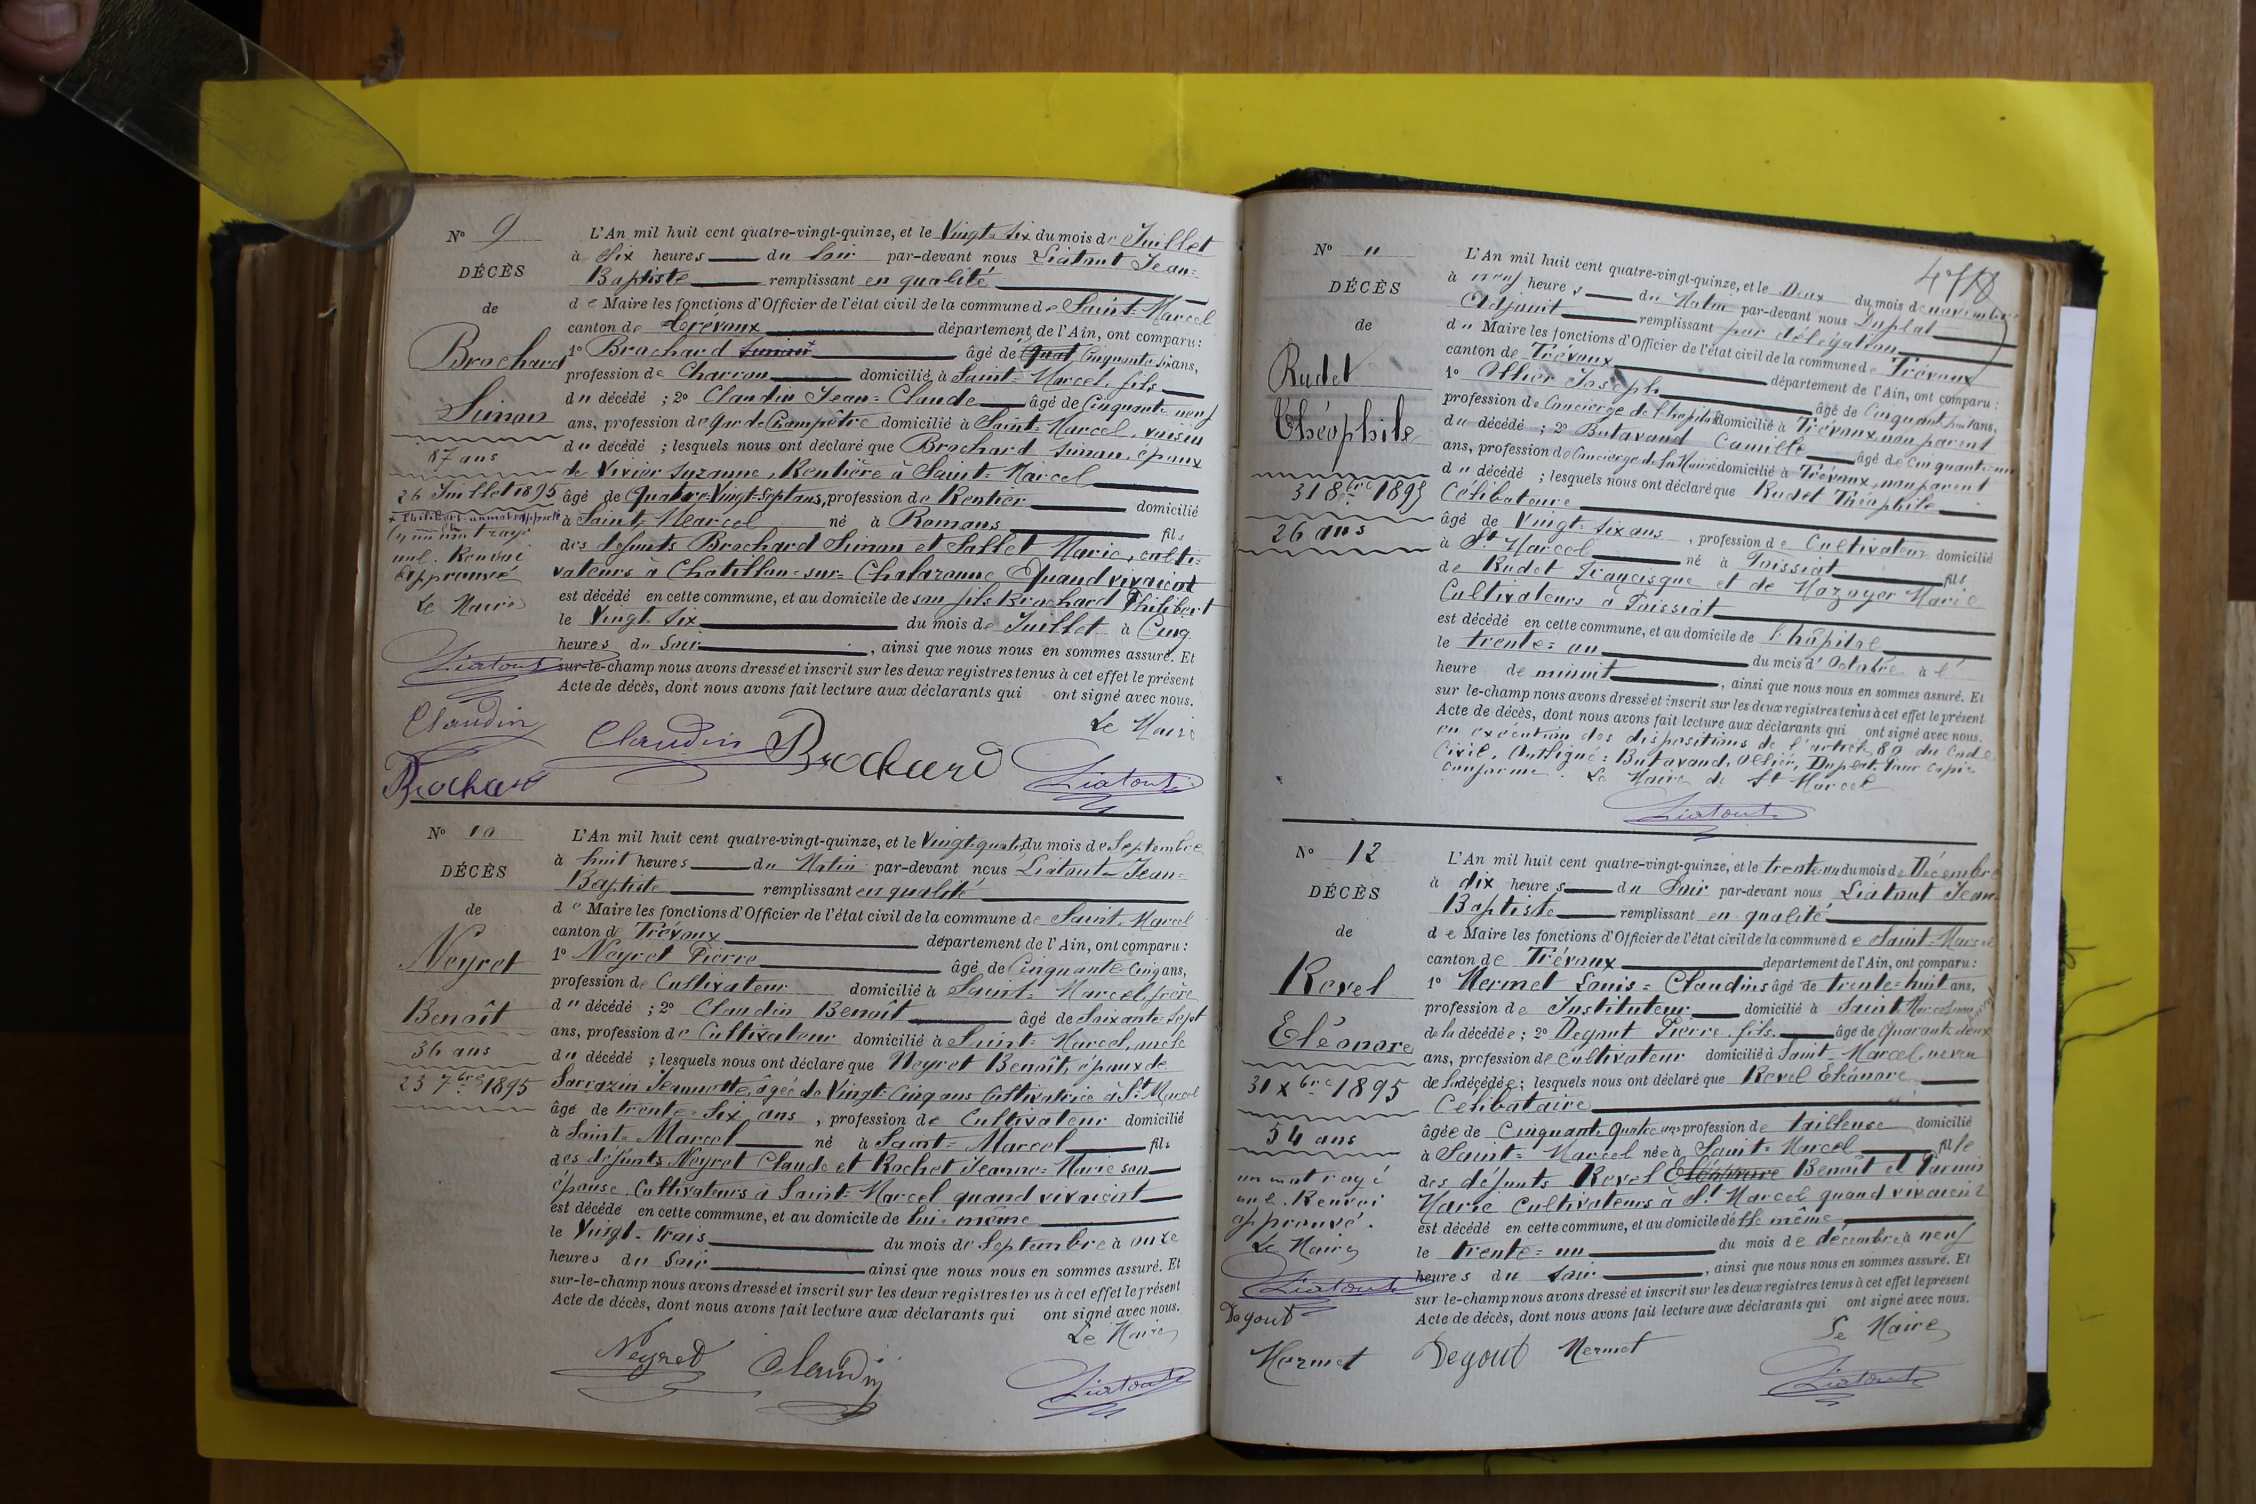 N° 9
DÉCÈS
de
Brochard
Simon
87 ans
26 Juillet 1895
+ Philibert un mot approuvé
un mot rayé
nul. Renvoi
Approuvé
Le Maire
Liatout
Claudin
Brochard
L'An mil huit cent quatre-vingt-quinze, et le Vingt-six du mois de Juillet
à Six heures du Soir par-devant nous Liatout Jean-
Baptiste remplissant en qualité
de Maire les fonctions d'Officier de l'état civil de la commune de Saint-Marcel
canton de Trévoux département de l'Ain, ont comparu:
1° Brochard Simon + âgé de Quat Cinquante six ans,
profession de Charron domicilié à Saint-Marcel, fils
du décédé ; 2° Claudin Jean-Claude âgé de Cinquante neuf
ans, profession de garde Champêtre domicilié à Saint-Marcel, voisin
du décédé ; lesquels nous ont déclaré que Brochard Simon, époux
de Vivier Suzanne, Rentière à Saint-Marcel
âgé de Quatre-Vingt-Sept ans, profession de Rentier domicilié
à Saint-Marcel né à Romans fils
des défunts Brochard Simon et Sallet Marie, culti-
vateurs à Chatillon-sur-Chalaronne Quand vivaient
est décédé en cette commune, et au domicile de son fils Brochard Philibert
le Vingt-Six du mois de Juillet à Cinq
heures du Soir , ainsi que nous nous en sommes assuré. Et
sur-le-champ nous avons dressé et inscrit sur les deux registres tenus à cet effet le présent
Acte de décès, dont nous avons fait lecture aux déclarants qui ont signé avec nous.
Le Maire
Claudin Brochard Liatout
N° 10
DÉCÈS
de
Neyret
Benoît
36 ans
23 7bre 1895
L'An mil huit cent quatre-vingt-quinze, et le Vingt-quatre du mois de Septembre
à huit heures du Matin par-devant nous Liatout Jean-
Baptiste remplissant en qualité
de Maire les fonctions d'Officier de l'état civil de la commune de Saint-Marcel
canton de Trévoux département de l'Ain, ont comparu:
1° Neyret Pierre âgé de Cinquante Cinq ans,
profession de Cultivateur domicilié à Saint-Marcel, frère
du décédé ; 2° Claudin Benoît âgé de Soixante-Sept
ans, profession de Cultivateur domicilié à Saint-Marcel, oncle
du décédé ; lesquels nous ont déclaré que Neyret Benoît, époux de
Sarrazin Jeannette, âgée de Vingt-Cinq ans Cultivatrice à St Marcel
âgé de trente-Six ans , profession de Cultivateur domicilié
à Saint-Marcel né à Saint-Marcel fils
des défunts Neyret Claude et Rochet Jeanne-Marie son
épouse. Cultivateurs à Saint-Marcel quand vivaient
est décédé en cette commune, et au domicile de lui-même
le Vingt-trois du mois de Septembre à onze
heures du Soir ainsi que nous nous en sommes assuré. Et
sur-le-champ nous avons dressé et inscrit sur les deux registres tenus à cet effet le présent
Acte de décès, dont nous avons fait lecture aux déclarants qui ont signé avec nous.
Le Maire
Neyret Claudin Liatout
N° 11
DÉCÈS
de
Rudet
Théophile
31 8bre 1895
26 ans
L'An mil huit cent quatre-vingt-quinze, et le Deux du mois de novembre
à neuf heures du Matin par-devant nous Duplat
Adjoint remplissant par délégation
du Maire les fonctions d'Officier de l'état civil de la commune de Trévoux
canton de Trévoux département de l'Ain, ont comparu :
1° Ollier Joseph âgé de Cinquante ans,
profession de Concierge de l'hôpital domicilié à Trévoux, non parent
du décédé ; 2° Butavand Camille âgé de Cinquante un
ans, profession de Concierge de la Mairie domicilié à Trévoux, non parent
du décédé ; lesquels nous ont déclaré que Rudet Théophile
Célibataire
âgé de Vingt-six ans , profession de Cultivateur domicilié
à St Marcel né à Toissiat fils
de Rudet Françisque et de Mazoyer Marie
Cultivateurs à Toissiat
est décédé en cette commune, et au domicile de l'hôpital
le trente-un du mois d'Octobre à l'
heure de minuit , ainsi que nous nous en sommes assuré. Et
sur le-champ nous avons dressé et inscrit sur les deux registres tenus à cet effet le présent
Acte de décès, dont nous avons fait lecture aux déclarants qui ont signé avec nous.
en exécution des dispositions de l'article 80 du Code
Civil. Ont signé : Butavand, Ollier, Duplat. Pour copie
conforme. Le Maire de St Marcel
Liatout
N° 12
DÉCÈS
de
Revel
Eléonore
31 Xbre 1895
54 ans
un mot rayé
nul. Renvoi
approuvé.
Le Maire
Liatout
Degout
Mermet
L'An mil huit cent quatre-vingt-quinze, et le trente un du mois de Décembre
à dix heures du Soir par-devant nous Liatout Jean-
Baptiste remplissant en qualité
de Maire les fonctions d'Officier de l'état civil de la commune de Saint-Marcel
canton de Trévoux département de l'Ain, ont comparu :
1° Mermet Louis-Claudius âgé de trente-huit ans,
profession de Instituteur domicilié à Saint Marcel non parent
de la décédée ; 2° Degout Pierre, fils. âgé de Quarante deux
ans, profession de Cultivateur domicilié à Saint-Marcel, neveu
de la décédée ; lesquels nous ont déclaré que Revel Eléonore
Célibataire
âgée de Cinquante Quatre ans profession de tailleuse domicilié
à Saint-Marcel née à Saint-Marcel fille
des défunts Revel Eléonore Benoît et Parmin
Marie Cultivateurs à St Marcel quand vivaient
est décédé en cette commune, et au domicile d'elle même
le trente-un du mois de décembre à neuf
heures du soir , ainsi que nous nous en sommes assuré. Et
sur le-champ nous avons dressé et inscrit sur les deux registres tenus à cet effet le présent
Acte de décès, dont nous avons fait lecture aux déclarants qui ont signé avec nous.
Le Maire
Degout Mermet Liatout